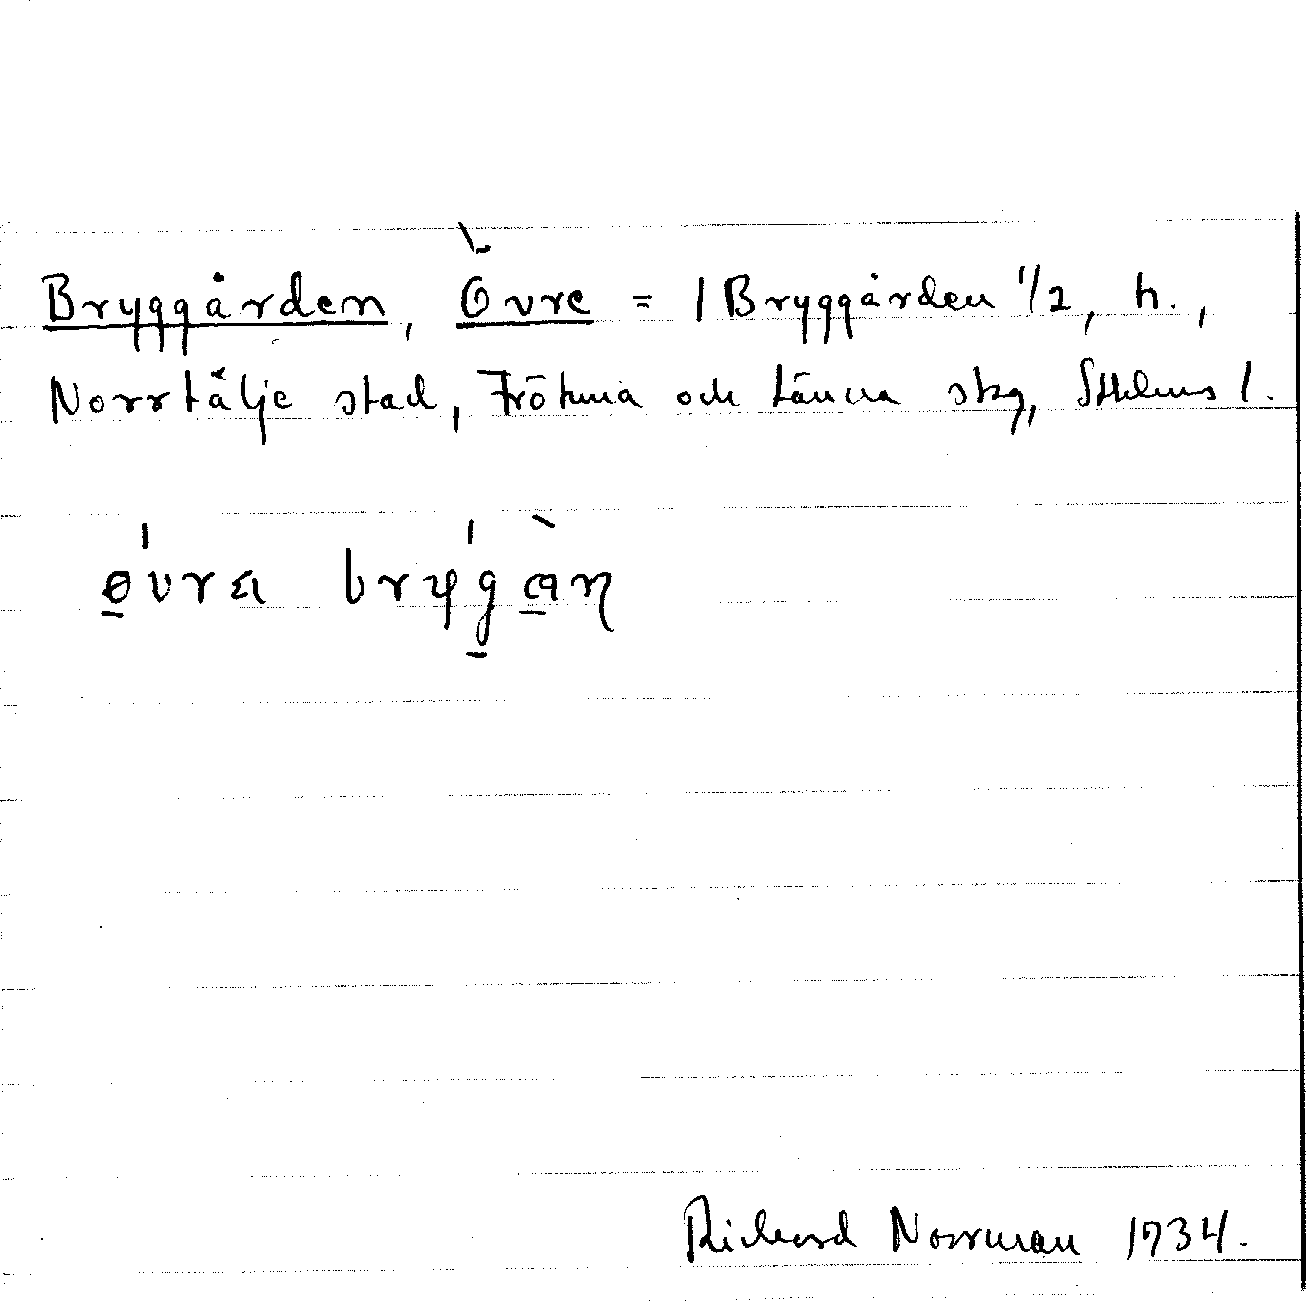 Bryggården, Övre = / Bryggården 1/2, h.,
Norrtälje stad, Frötuna och Länna skg, Sthlms l.
øvra bryg an
Richard Norrman 1934.